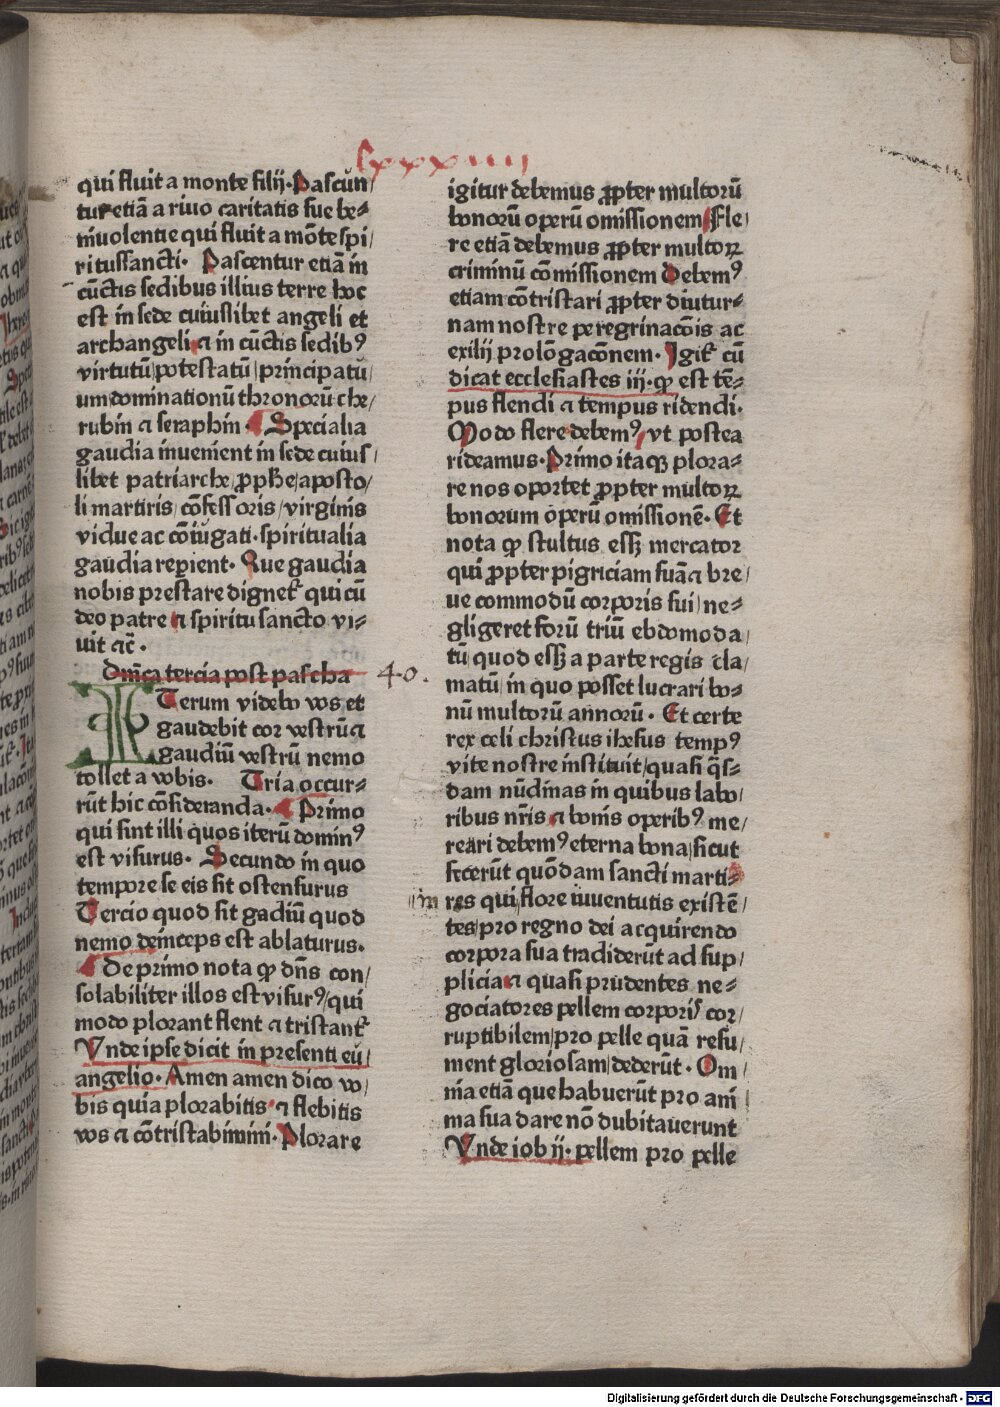 lxxxiiii
qui fluit a monte filij. Pascun/
tur etiā a riuo caritatis sue be⸗
niuolentie qui fluit a mōte spi/
ritussancti. Pascentur etiā in
cūctis sedibus illius terre hoc
est in sede cuiuslibet angeli et
archangeli ⁊ in cūctis sedibꝰ
virtutū/potestatū/principatū/
um dominationū thronorū che/
rubin ⁊ seraphin. Specialia
gaudia inuenient in sede cuius/
libet patriarche/ꝓphe/aposto/
li martiris/cōfessoris/virginis
vidue ac cōiūgati. spiritualia
gaudia reperient. Que gaudia
nobis prestare dignet᷑ qui cū
deo patre ⁊ spiritu sancto vi⸗
uit ⁊c̄.
Dn̄ica tercia post pascha 40.
ITerum videbo vos et
gaudebit cor vestrū ⁊
gaudiū vestrū nemo
tollet a vobis. Tria occur⸗
rūt hic cōsideranda. Primo
qui sint illi quos iterū dominꝰ
est visurus. Secundo in quo
tempore se eis sit ostensurus
Tercio quod sit gadiū quod
nemo deinceps est ablaturus.
De primo nota ꝙ dn̄s con/
solabiliter illos est visurꝰ/qui
modo plorant flent ⁊ tristant᷑
Vnde ipse dicit in presenti eū/
angelio. Amen amen dico vo/
bis quia plorabitis ⁊ flebitis
vos ⁊ cōtristabimini. Plorare
igitur debemus ꝓpter multorū
bonorū operū omissionem Fle/
re etiā debemus ꝓpter multoꝝ
criminū cōmissionem Debemꝰ
etiam cōtristari ꝓpter diutur⸗
nam nostre peregrinacōis ac
exilij prolōgacōnem. Igit᷑ cū
dicat ecclesiastes iij. ꝙ est tē⸗
pus flendi ⁊ tempus ridendi.
Modo flere debemꝰ/vt postea
rideamus. Primo itaqꝫ plora⸗
re nos oportet ꝓpter multoꝝ
bonorum operū omissionē. Et
nota ꝙ stultus essꝫ mercator
qui ꝓpter pigriciam suā ⁊ bre/
ue commodū corporis sui/ne⸗
gligeret forū triū ebdomoda/
tū quod essꝫ a parte regis cla/
matū/in quo posset lucrari bo⸗
nū multorū annorū. Et certe
rex celi christus ihesus tempꝰ
vite nostre instituit/quasi q̄s⸗
dam nūdinas in quibus labo/
ribus nr̄is ⁊ bonis operibꝰ me/
reari debemꝰ eterna bona/sicut
fecerūt quōdam sancti marti⸗
in res qui flore iuuentutis existē/
tes/pro regno dei acquirendo
corpora sua tradiderūt ad sup/
plicia ⁊ quasi prudentes ne⸗
gociatores pellem corporis cor/
ruptibilem/pro pelle quā resu/
ment gloriosam/dederūt. Om/
nia etiā que habuerūt pro ani/
ma sua dare nō dubitauerunt
Vnde iob ij. pellem pro pelle
Digitalisierung gefördert durch die Deutsche Forschungsgemeinschaft - DFG